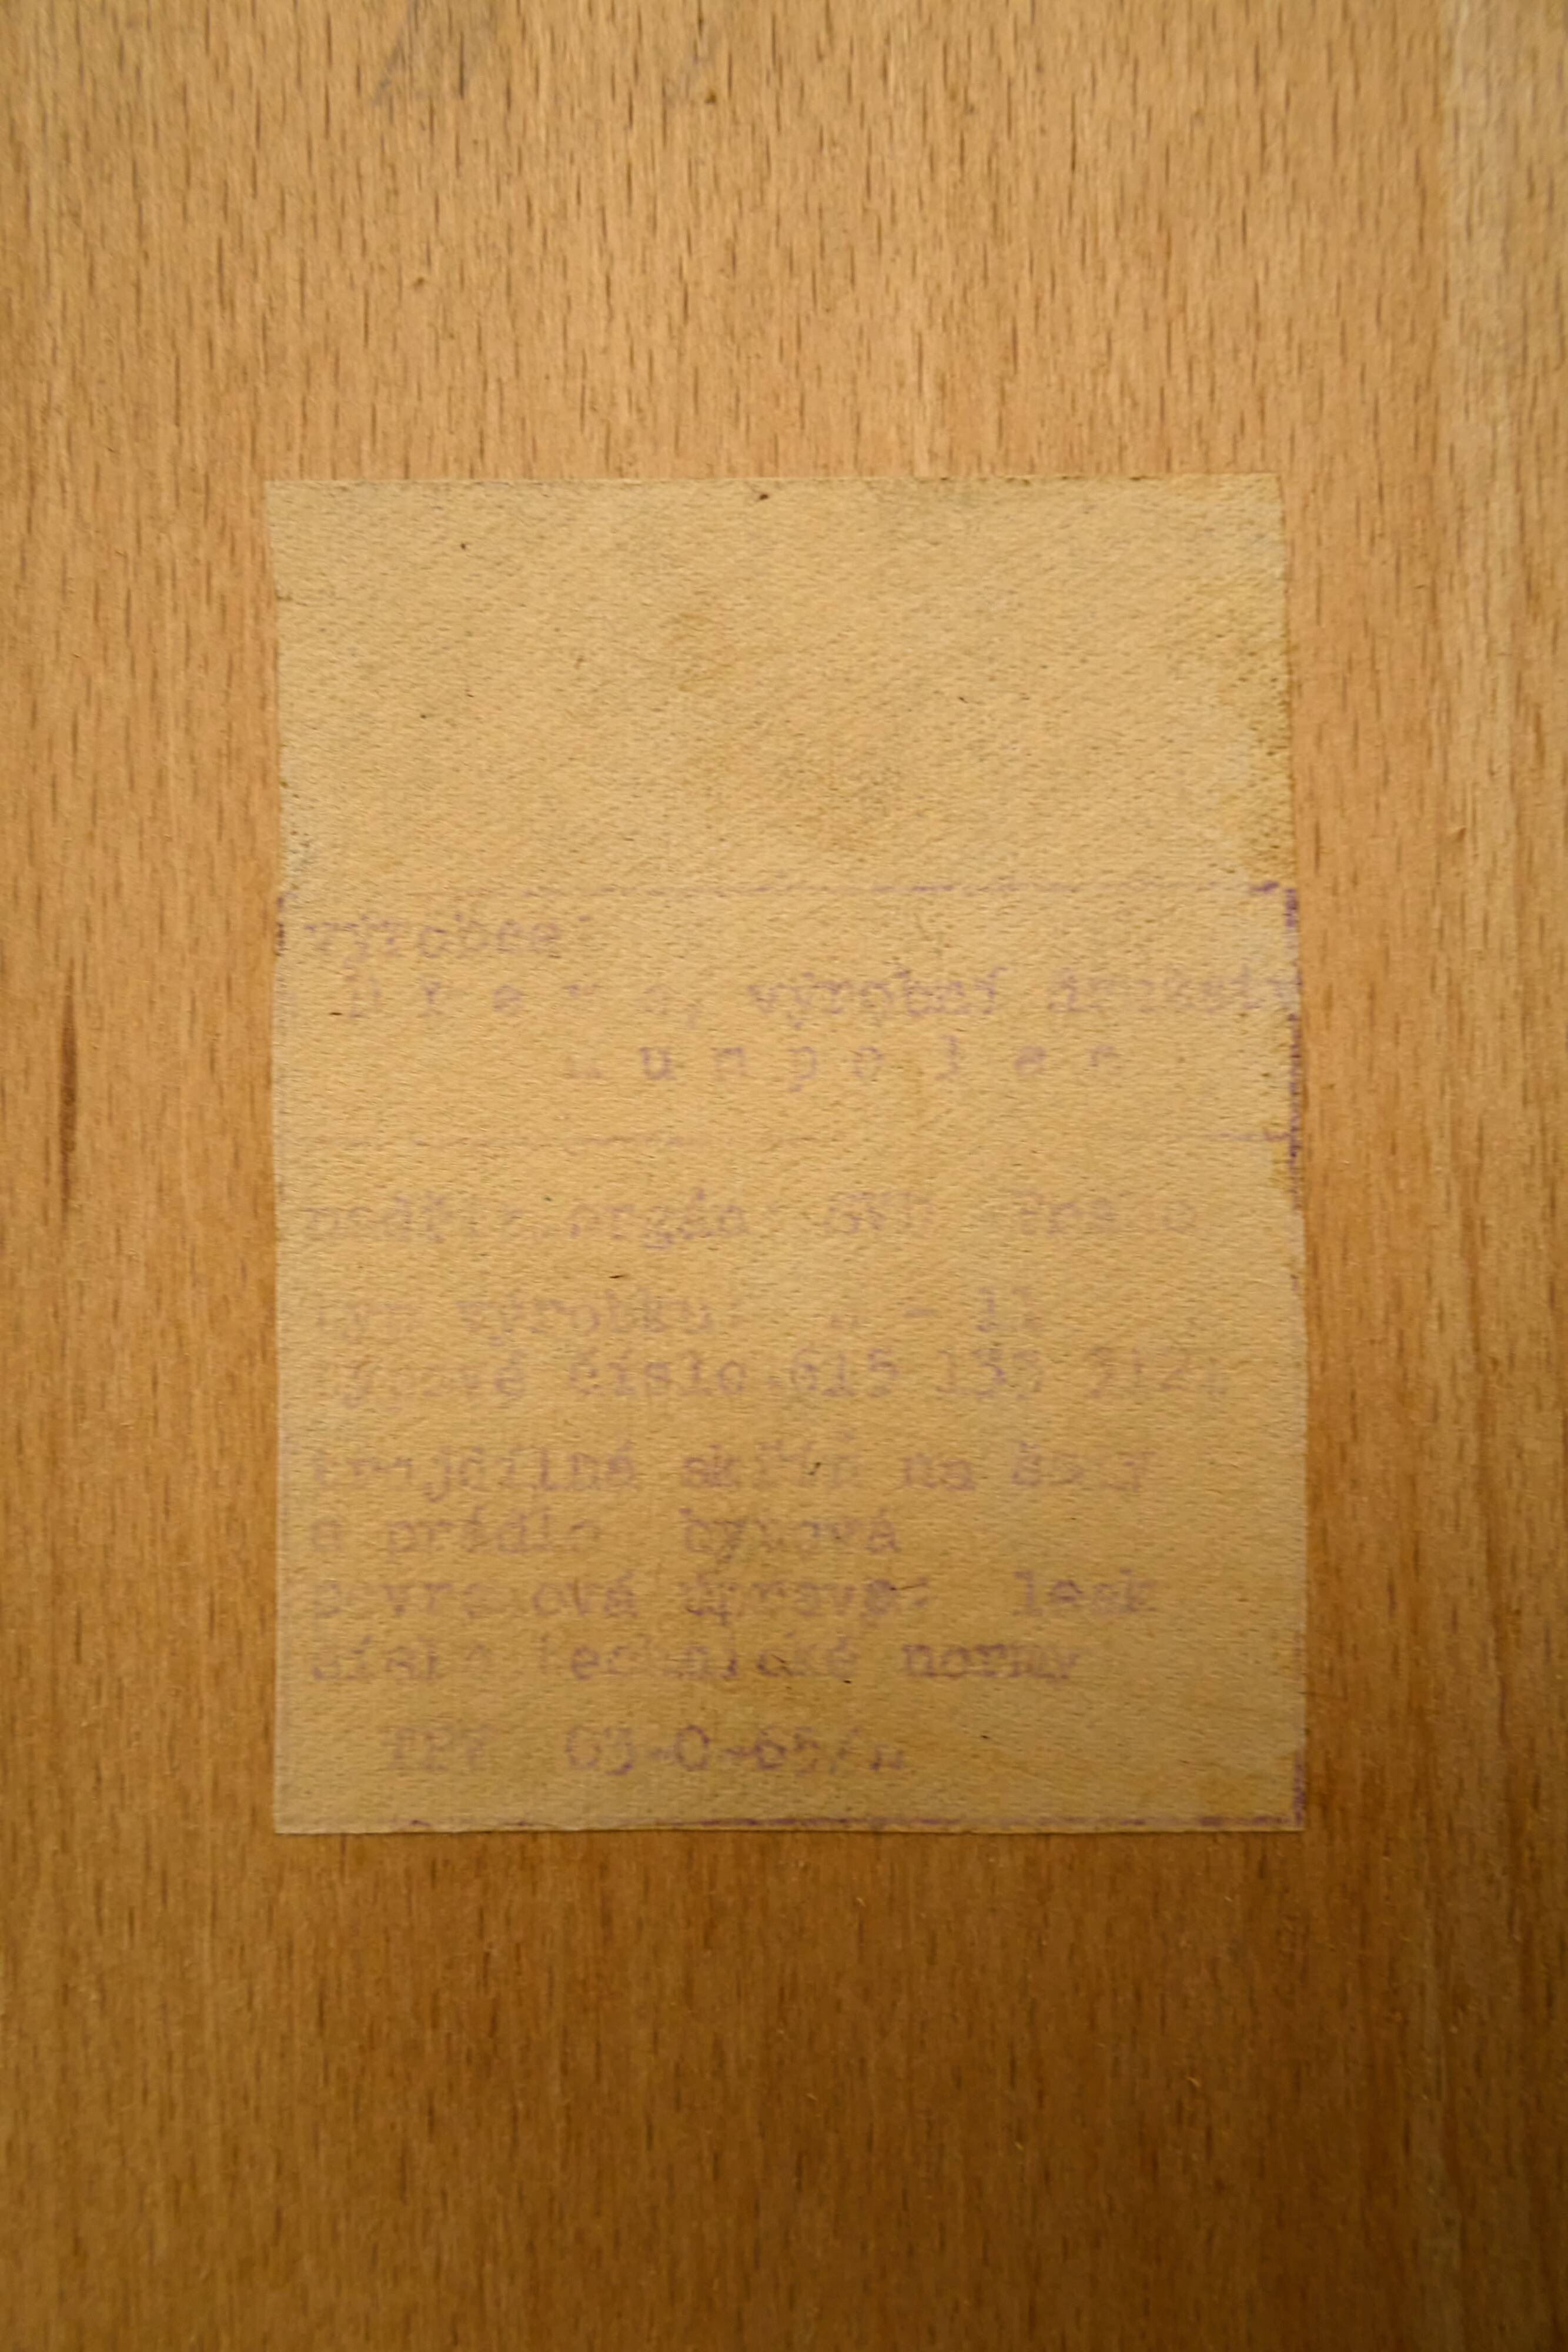 výrobce:
D r e v o, výrobní družstvo
H u m p o l e c
orgán
typ výrobku: - 11
typové číslo 615 133
skříň na šaty
a prádlo bytová
povrchová úprava: lesk
číslo technické normy
03-0-65/